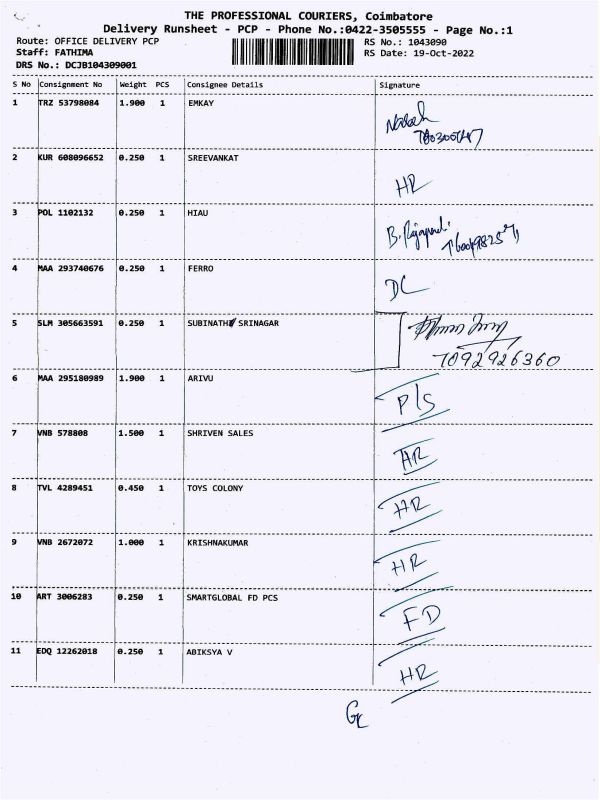 THE PROFESSIONAL COURIERS, Coimbatore
Delivery Runsheet - PCP - Phone No.:0422-3505555 - Page No.:1
Route: OFFICE DELIVERY PCP RS No.: 1043090
Staff: FATHIMA RS Date: 19-Oct-2022
DRS No.: DCJB104309001
S No Consignment No Weight PCS Consignee Details Signature
1 TRZ 53798084 1.900 1 EMKAY
2 KUR 608096652 0.250 1 SREEVANKAT
HR
3 POL 1102132 0.250 1 HIAU
4 MAA 293740676 0.250 1 FERRO
DC
5 SLM 305663591 0.250 1 SUBINATHI SRINAGAR
7092926360
6 MAA 295180989 1.900 1 ARIVU
P/S
7 VNB 578808 1.500 1 SHRIVEN SALES
HR
8 TVL 4289451 0.450 1 TOYS COLONY
HR
9 VNB 2672072 1.000 1 KRISHNAKUMAR
HR
10 ART 3006283 0.250 1 SMARTGLOBAL FD PCS
FD
11 EDQ 12262018 0.250 1 ABIKSYA V
HR